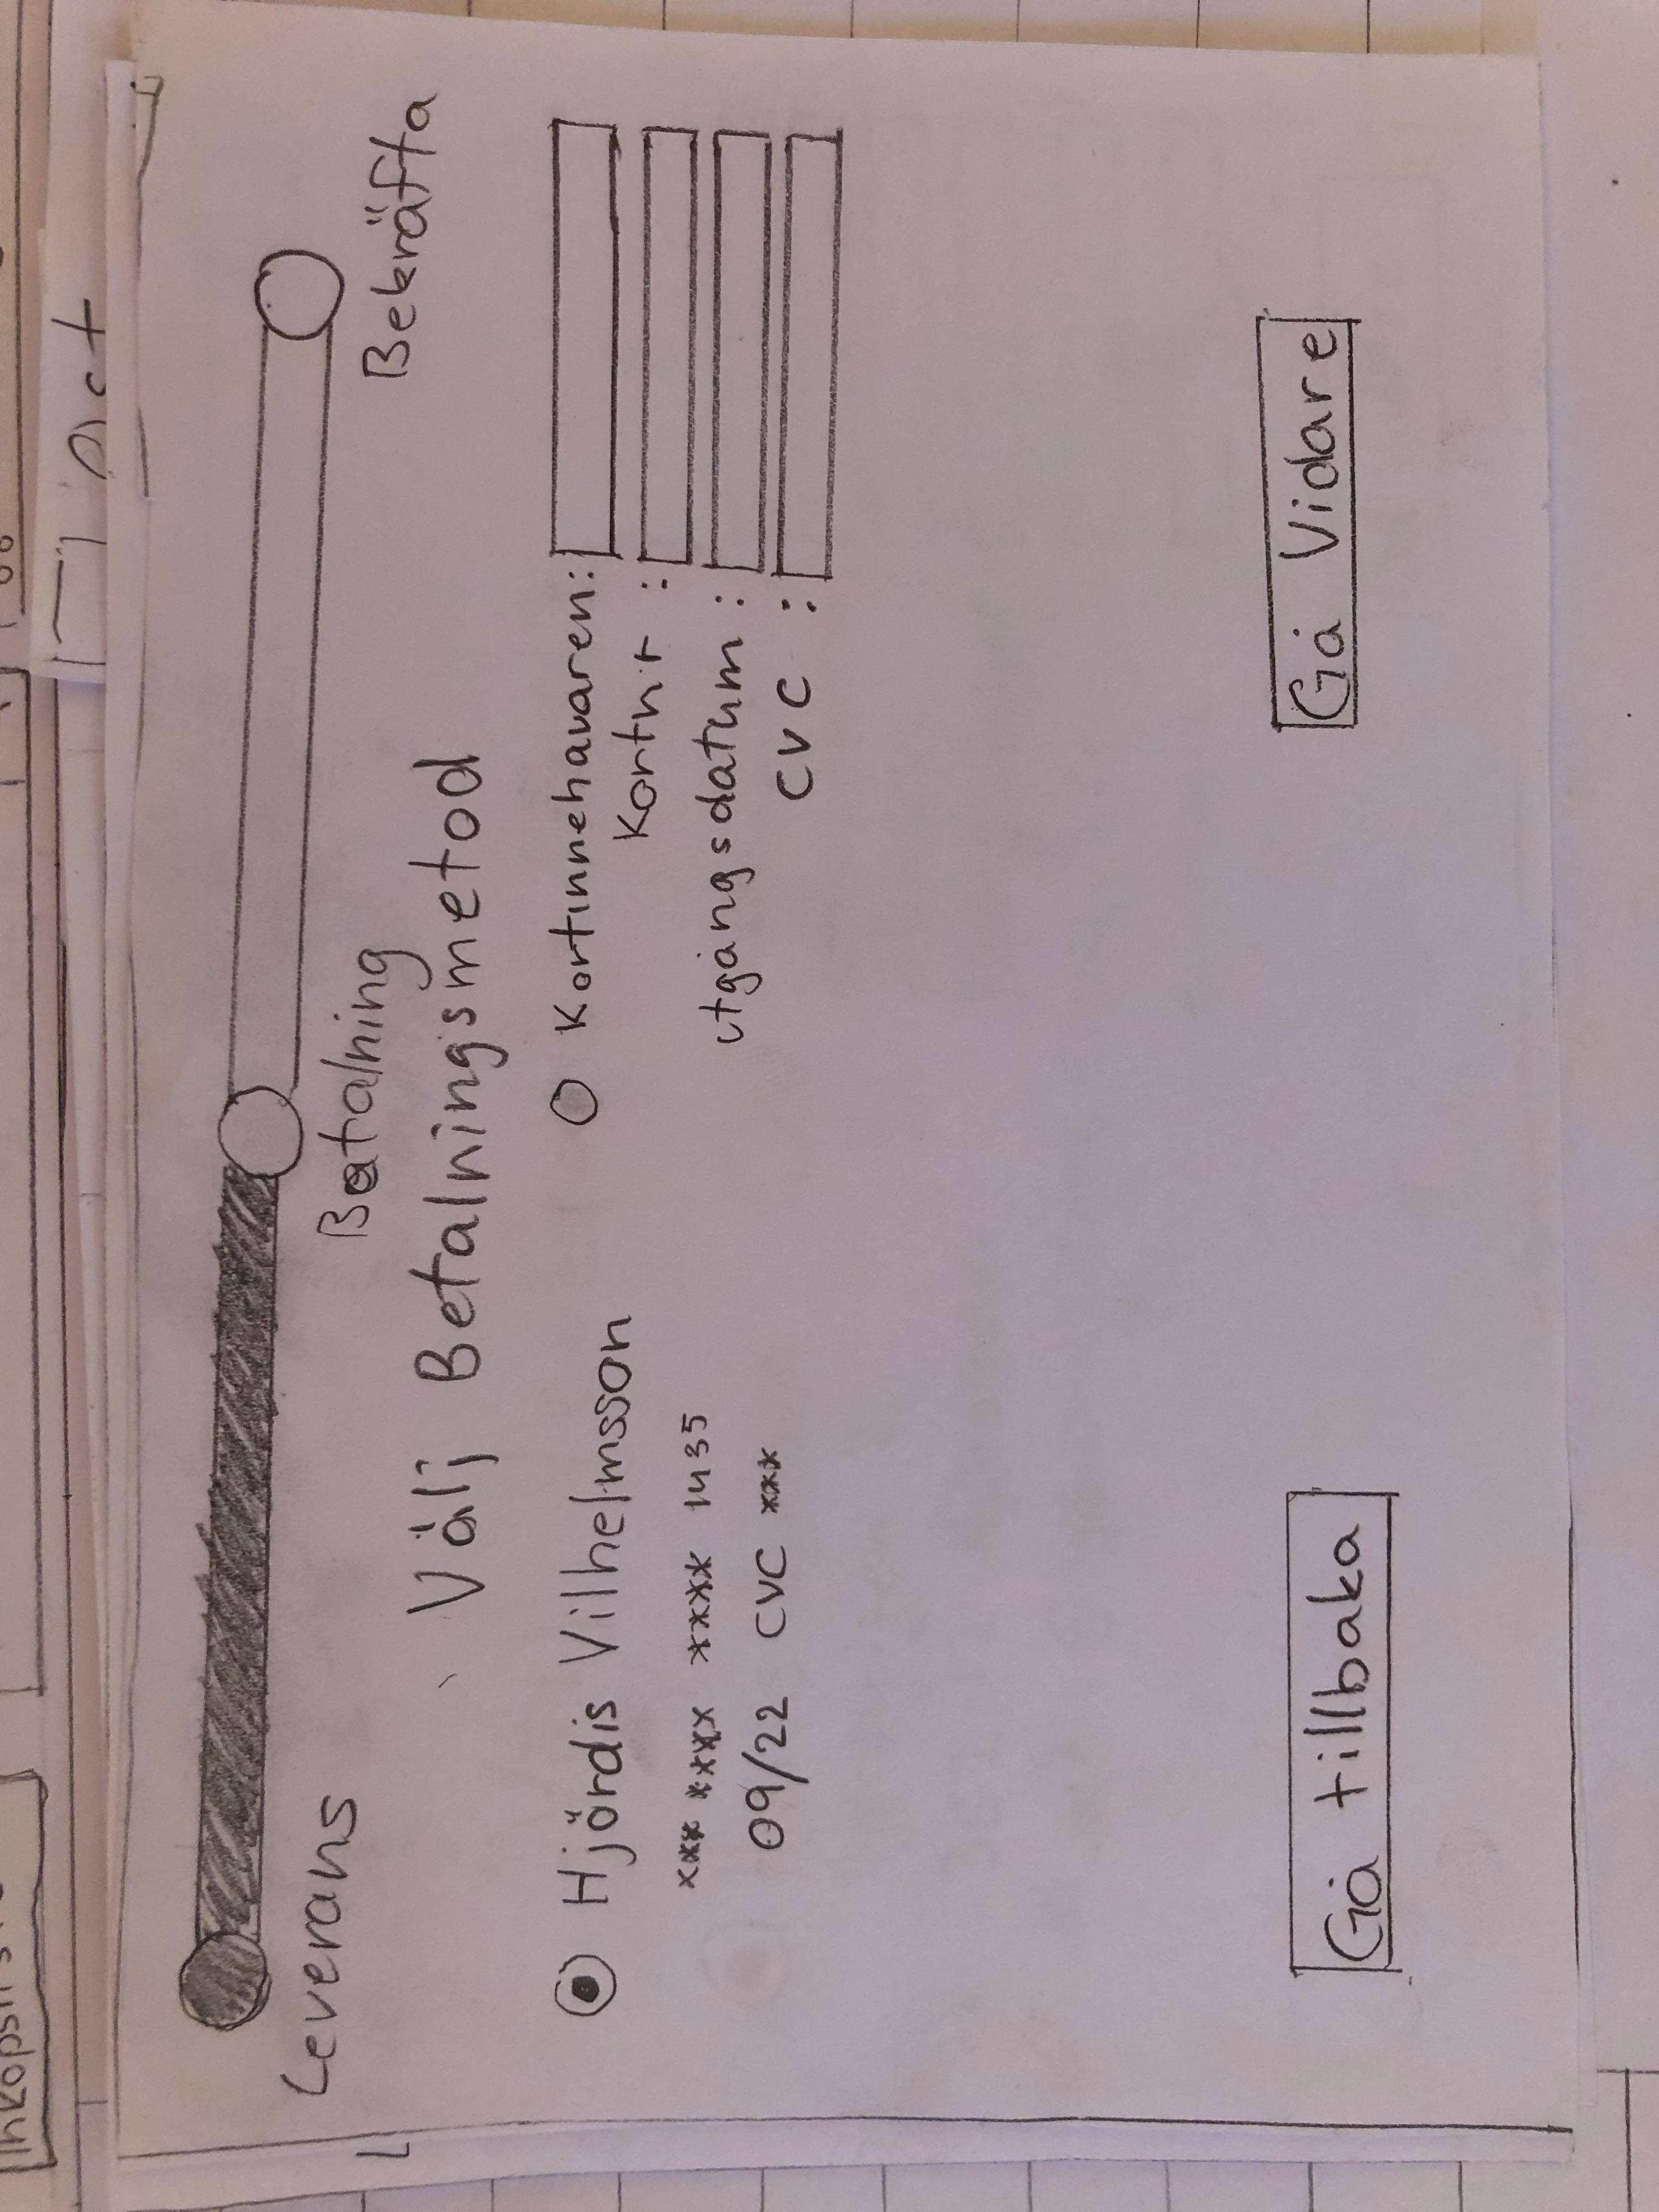 Leverans
Betalning
Bekräfta
Välj Betalningsmetod
Hjördis Vilhelmsson
*** **** **** 1435
09/22 CVC ***
Kortinnehavaren:
Kortnr :
utgångsdatum :
CVC :
Gå tillbaka
Gå Vidare